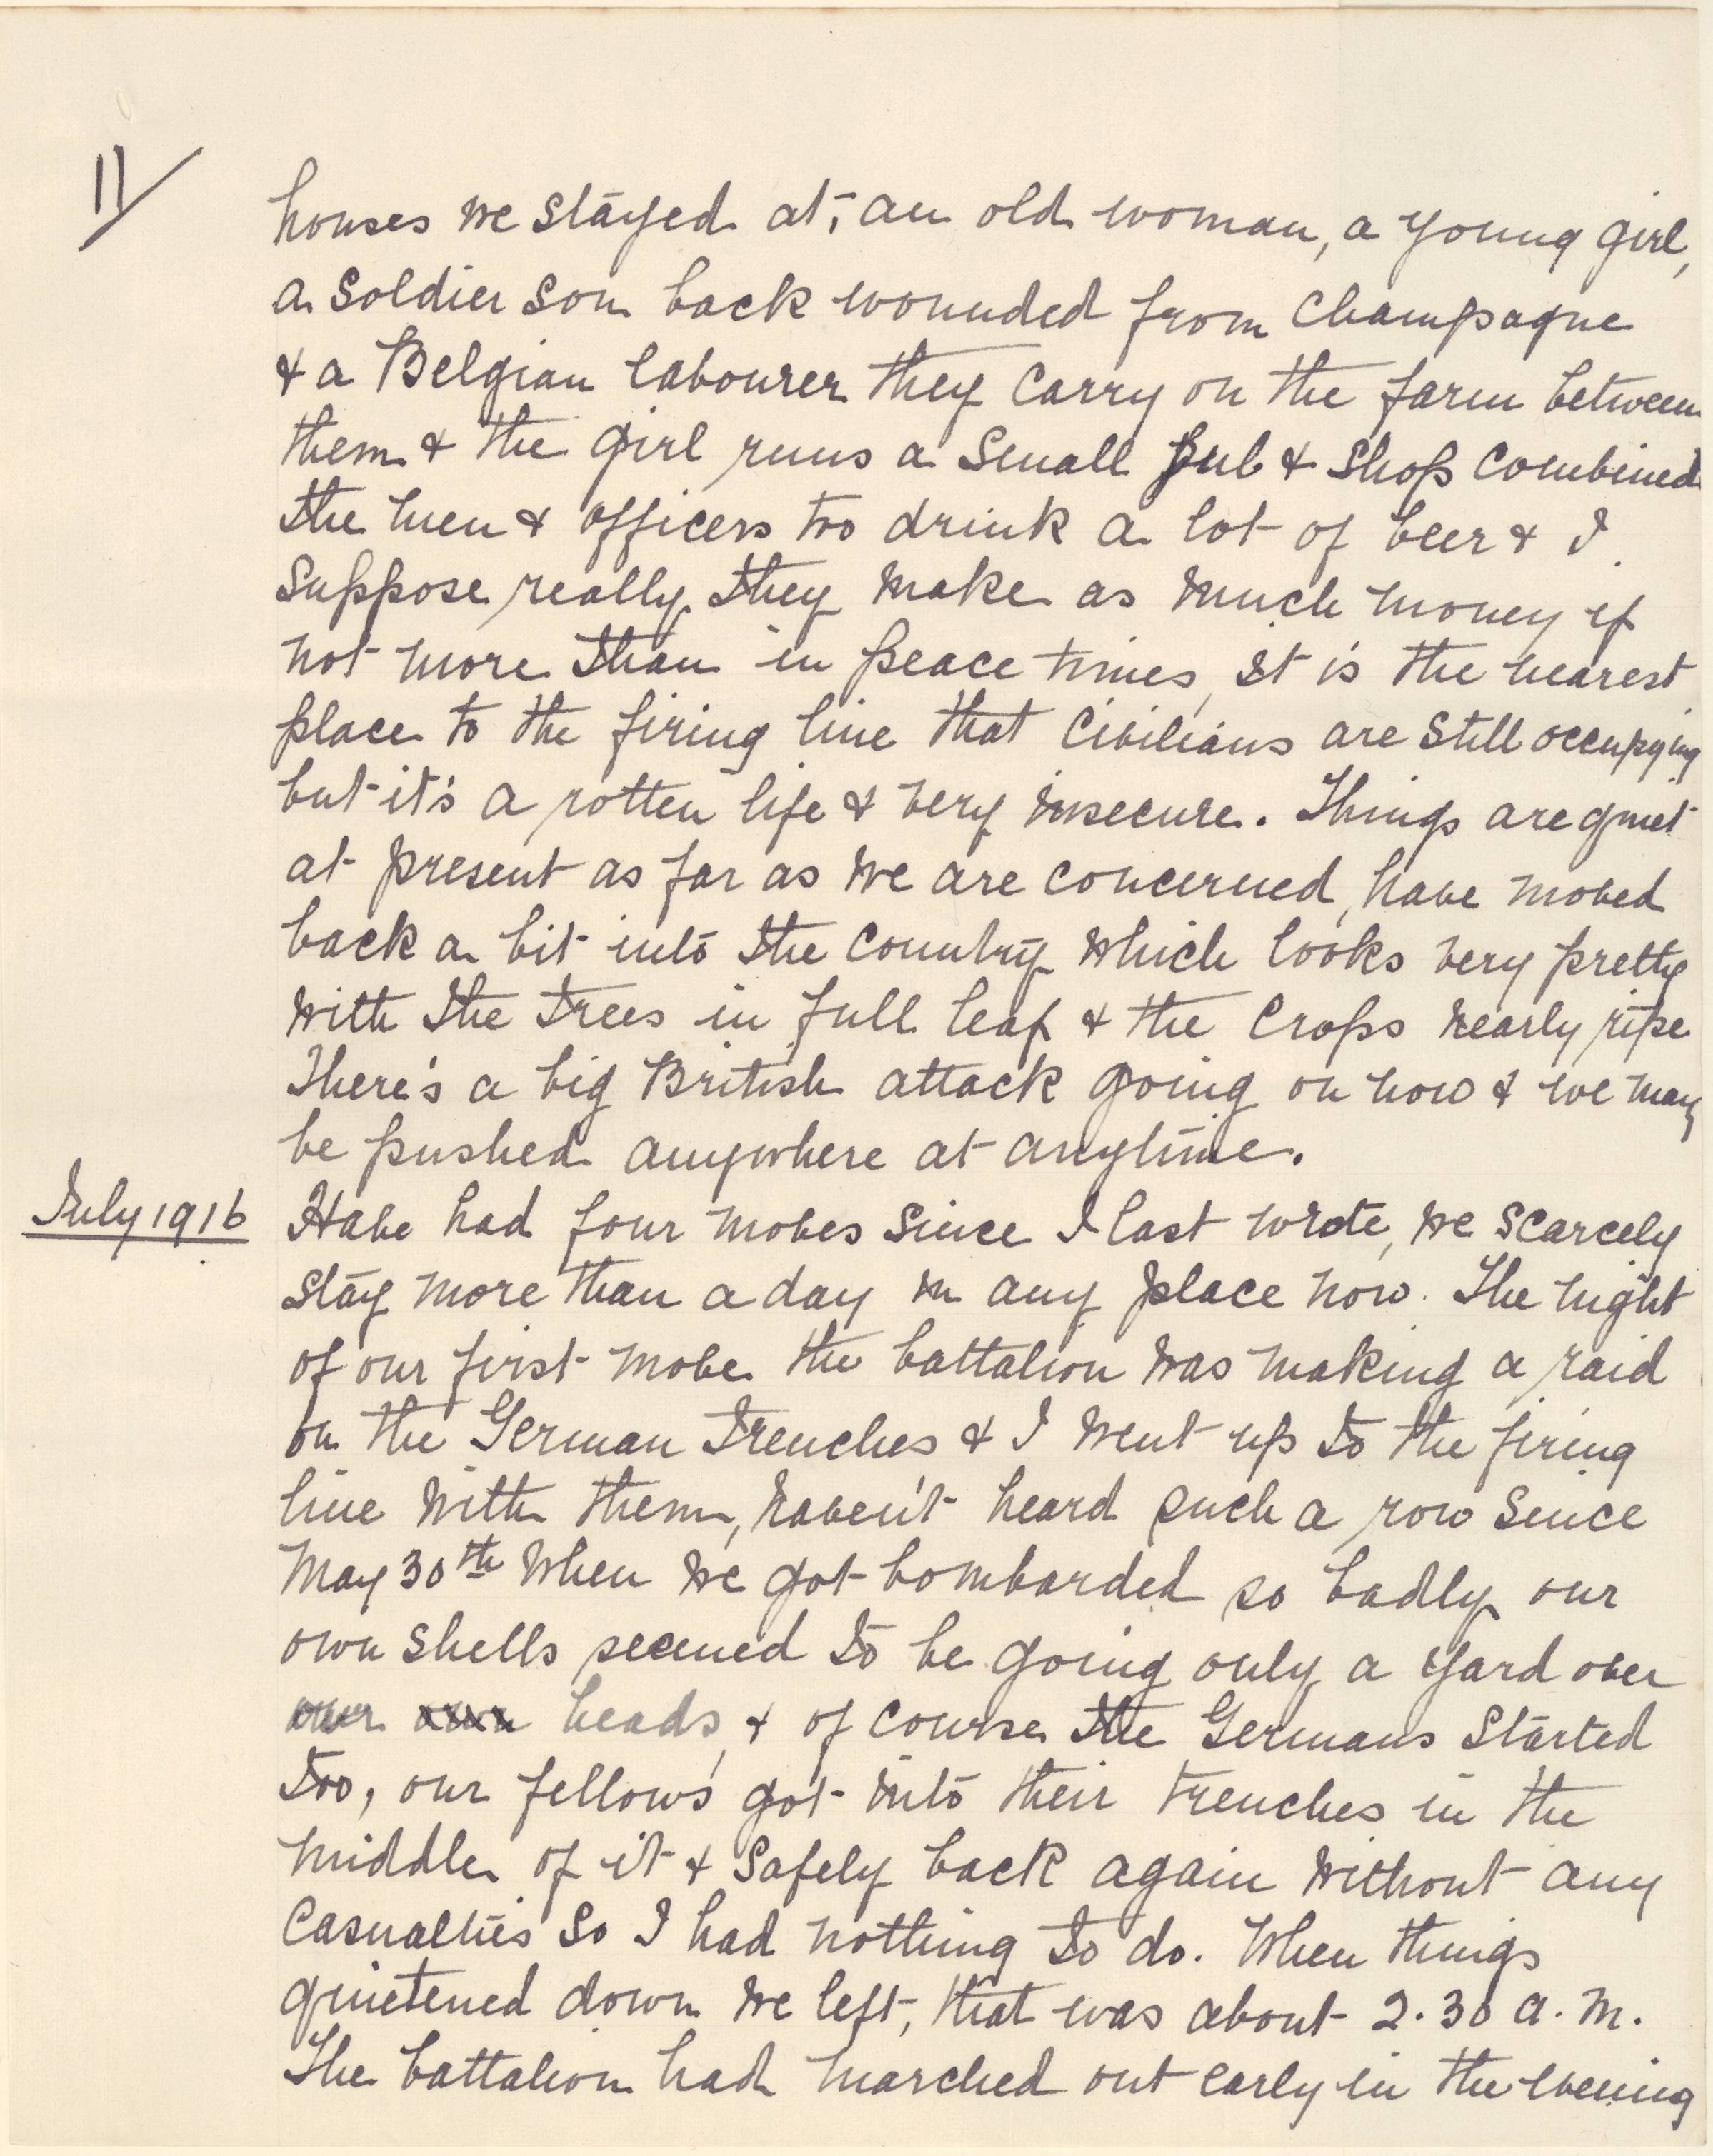 11/
houses we stayed at, an old woman, a young girl,
a soldier son back wounded from Champagne
& a Belgian labourer they carry on the farm between
them & the girl runs a small pub & shop combined
the men & officers too drink a lot of beer & I
suppose really they make as much money if
not more than in peace times, it is the nearest
place to the firing line that civilians are still occupying
but it's a rotten life & very insecure. Things are quiet
at present as far as we are concerned, have moved
back a bit into the country which looks very pretty
with the trees in full leaf & the crops nearly ripe
There's a big British attack going on now & we may
be pushed anywhere at anytime.
July 1916
Have had four moves since I last wrote, we scarcely
stay more than a day in any place now. The night
of our first move the battalion was making a raid
on the German trenches & I went up to the firing
line with them, haven't heard such a row since
May 30th when we got bombarded so badly our
own shells seemed to be going only a yard over
our own heads, & of course the Germans started
too, our fellows got into their trenches in the
middle of it & safely back again without any
casualties so I had nothing to do. When things
quietened down we left, that was about 2.30 a.m.
The battalion had marched out early in the evening